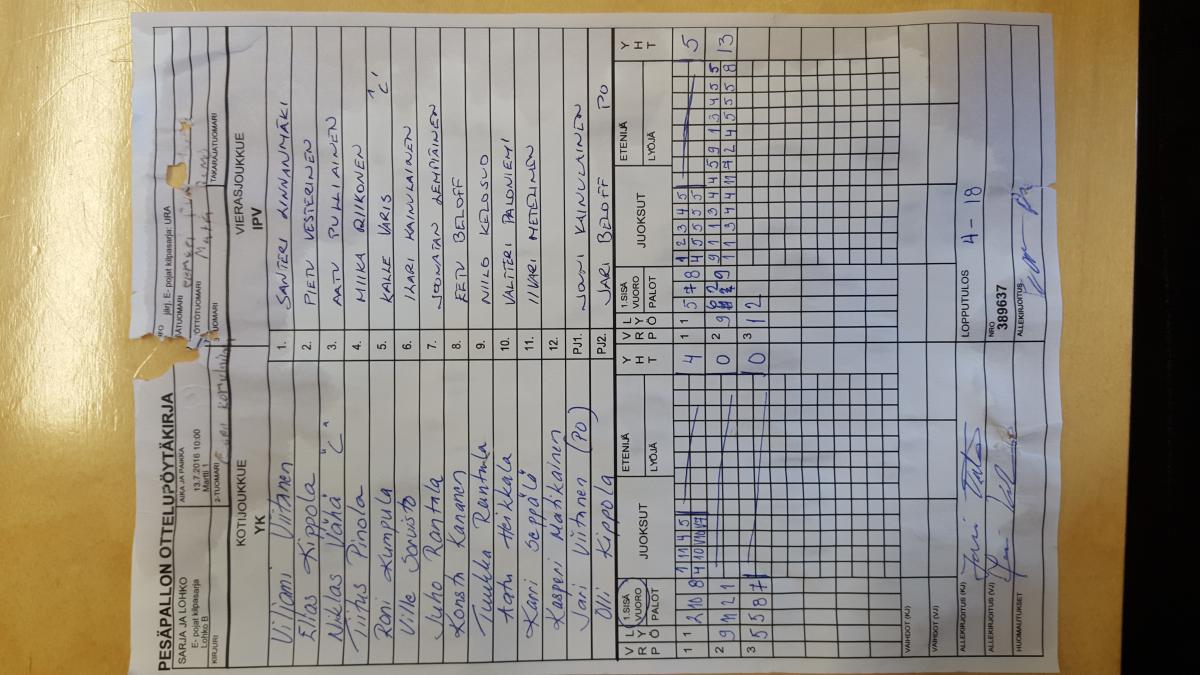 PESÄPALLON OTTELUPÖYTÄKIRJA
SARJA JA LOHKO
E- pojat kilpasarja
Lohko B
AIKA JA PAIKKA
13.7.2016 10:00
Martti 1
järj. E- pojat kilpasarja: URA
KIRJURI
2-TUOMARI
TAKARAJATUOMARI
KOTIJOUKKUE
YK
VIERASJOUKKUE
IPV
Viljami Viitanen 1. SANTERI LINNANMÄKI
Elias Kippola 2. PIETU VESTERINEN
Niklas Vähä "C" 3. AATU PULLIAINEN
Tiitus Pinola 4. MIIKA RIIKONEN
Roni Kumpula 5. KALLE VARIS "C"
Ville Sorvisto 6. ILARI KAINULAINEN
Juho Rantala 7. JOONATAN LEMPIÄINEN
Konsta Kananen 8. EETU BELOFF
Tuukka Rantala 9. NIILO KELOSUO
Aatu Heikkala 10. VALTTERI PALONIEMI
Kari Seppälä 11. IIVARI METELINEN
Kasperi Matikainen 12.
Jari Viitanen (PO) PJ1. JOUNI KAINULAINEN
Olli Kippola PJ2. JARI BELOFF PO
V R P L Y Ö 1.SISÄ VUORO PALOT JUOKSUT ETENIJÄ LYÖJÄ Y H T V R P L Y Ö 1.SISÄ VUORO PALOT JUOKSUT ETENIJÄ LYÖJÄ Y H T
1 1 2 10 8 4 1 1 5 7 8 1 2 3 4 5 5
4 5 5 5 5
2 9 11 2 1 0 2 9 9 1 1 3 4 4 5 9 1 3 4 5 5 13
1 1 3 4 4 11 7 2 4 5 5 5 8
3 5 5 8 7 0 3 12
VAIHDOT (KJ)
VAIHDOT (VJ)
ALLEKIRJOITUS (KJ)
LOPPUTULOS 4 - 18
ALLEKIRJOITUS (VJ)
NRO
389637
HUOMAUTUKSET
ALLEKIRJOITUS